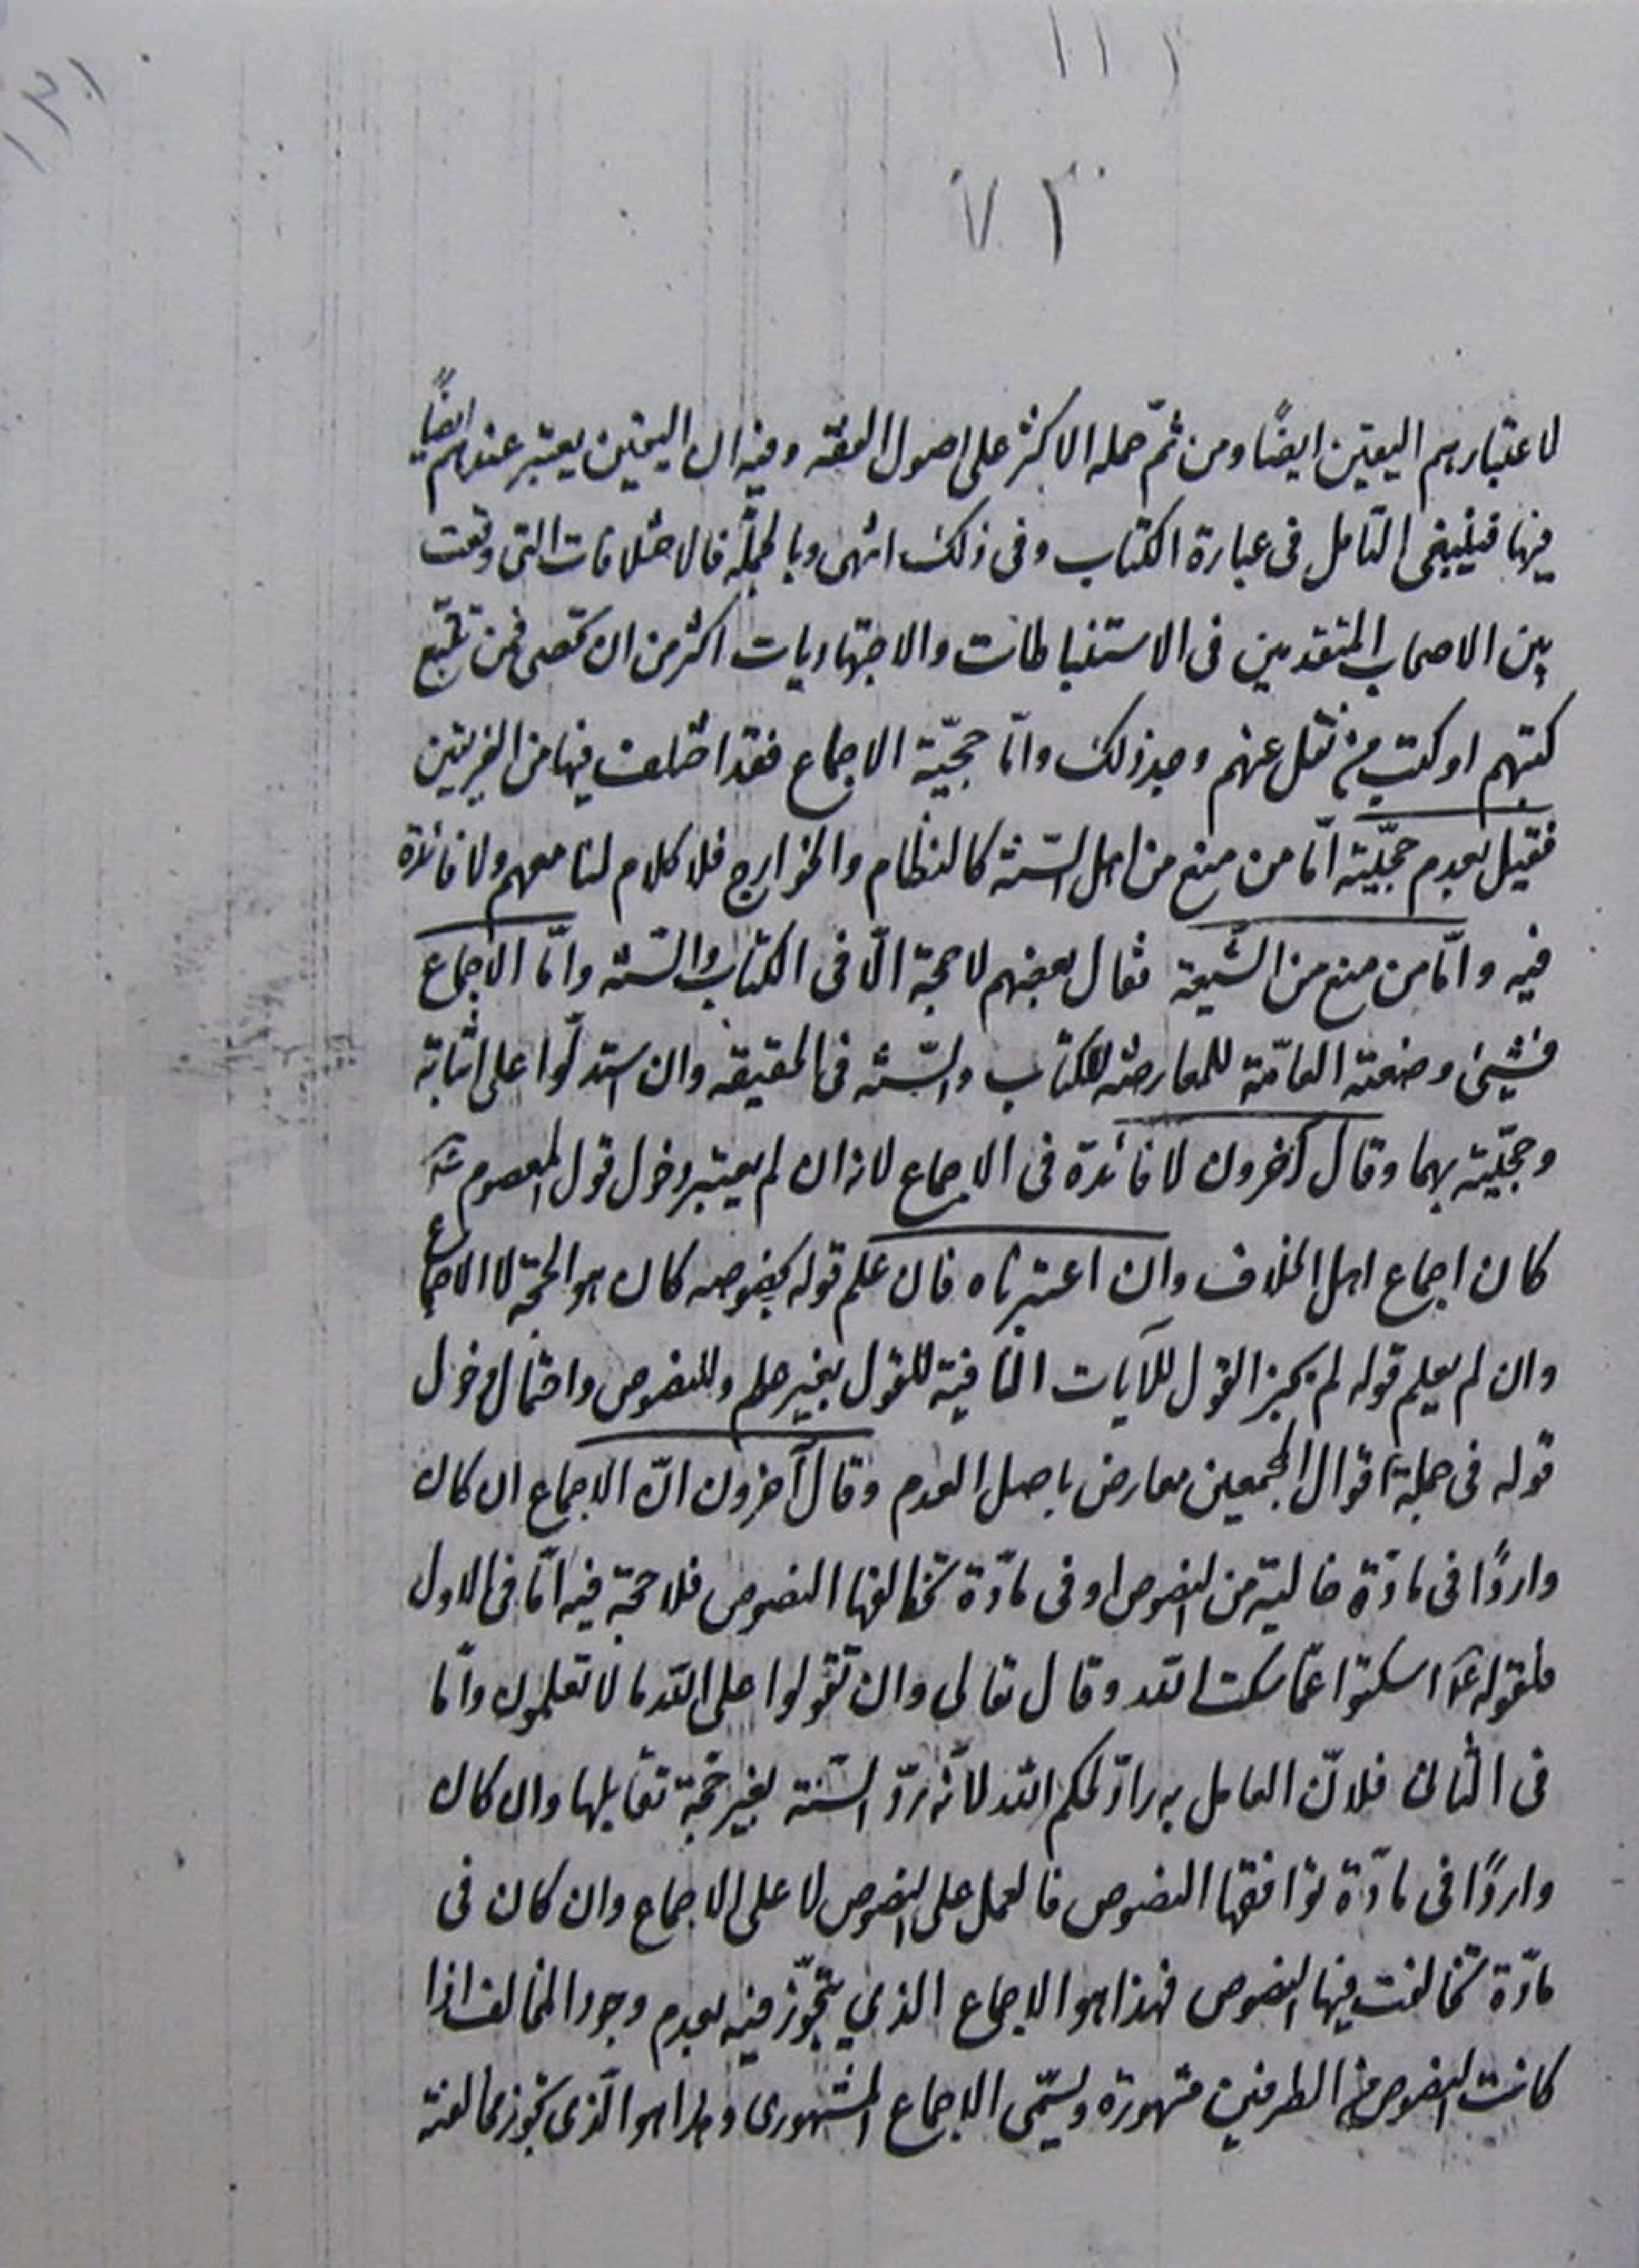 ١١١
١٣٠
٧٣
لاعتبارهم اليقين ايضًا ومن ثمّ حمله الاكثر على اصول الفقه وفيه ان اليقين يعتبر عندهم ايضًا
فيها فينبغى التامل فى عبارة الكتاب وفى ذلك انتهى وبالجملة فالاختلافات التى وقعت
بين الاصحاب المتقدمين فى الاستنباطات والاجتهاديات اكثر من ان تحصى فمن تتبّع
كتبهم او كتب من نقل عنهم وجد ذلك وامّا حجيّة الاجماع فقد اختلف فيها من الفريقين
فقيل بعدم حجيّته امّا من منع من اهل السّنة كالنظام والخوارج فلا كلام لنا معهم ولا فائدة
فيه وامّا من منع من الشّيعة فقال بعضهم لا حجة الّا فى الكتاب والسّنه وامّا الاجماع
فشيئ وضعته العامّة للمعارضه للكتاب والسّنه فى الحقيقه وان استدلّوا على اثباته
وحجيّته بهما وقال آخرون لا فائدة فى الاجماع لانه ان لم يعتبر دخول قول المعصوم عَ
كان اجماع اهل الخلاف وان اعتبرناه فان علم قوله بخصوصه كان هو الحجة لا الاجماع
وان لم يعلم قوله لم يجز القول للآيات النافية للقول بغير علم وللنصوص واحتمال دخول
قوله فى جملة اقوال المجمعين معارض باصل العدم وقال آخرون انّ الاجماع ان كان
واردًا فى مادّة خالية من النصوص او فى مادّة تخالفها النصوص فلا حجة فيه امّا فى الاول
فلقوله عَ اسكتوا عمّا سكت الله وقال تعالى وان تقولوا على الله ما لا تعلمون وامّا
فى الثانى فلانّ العامل به رادّ لحكم الله لانّه ردّ السّنة بغير حجّة تقابلها وان كان
واردًا فى مادّة توافقها النصوص فالعمل على النصوص لا على الاجماع وان كان فى
مادّة تخالفت فيها النصوص فهذا هو الاجماع الذي يتجوّز فيه بعدم وجود المخالف اذا
كانت النصوص من الطرفين مشهورة ويسمّى الاجماع المشهورى وهذا هو الّذى يجوز مخالفته